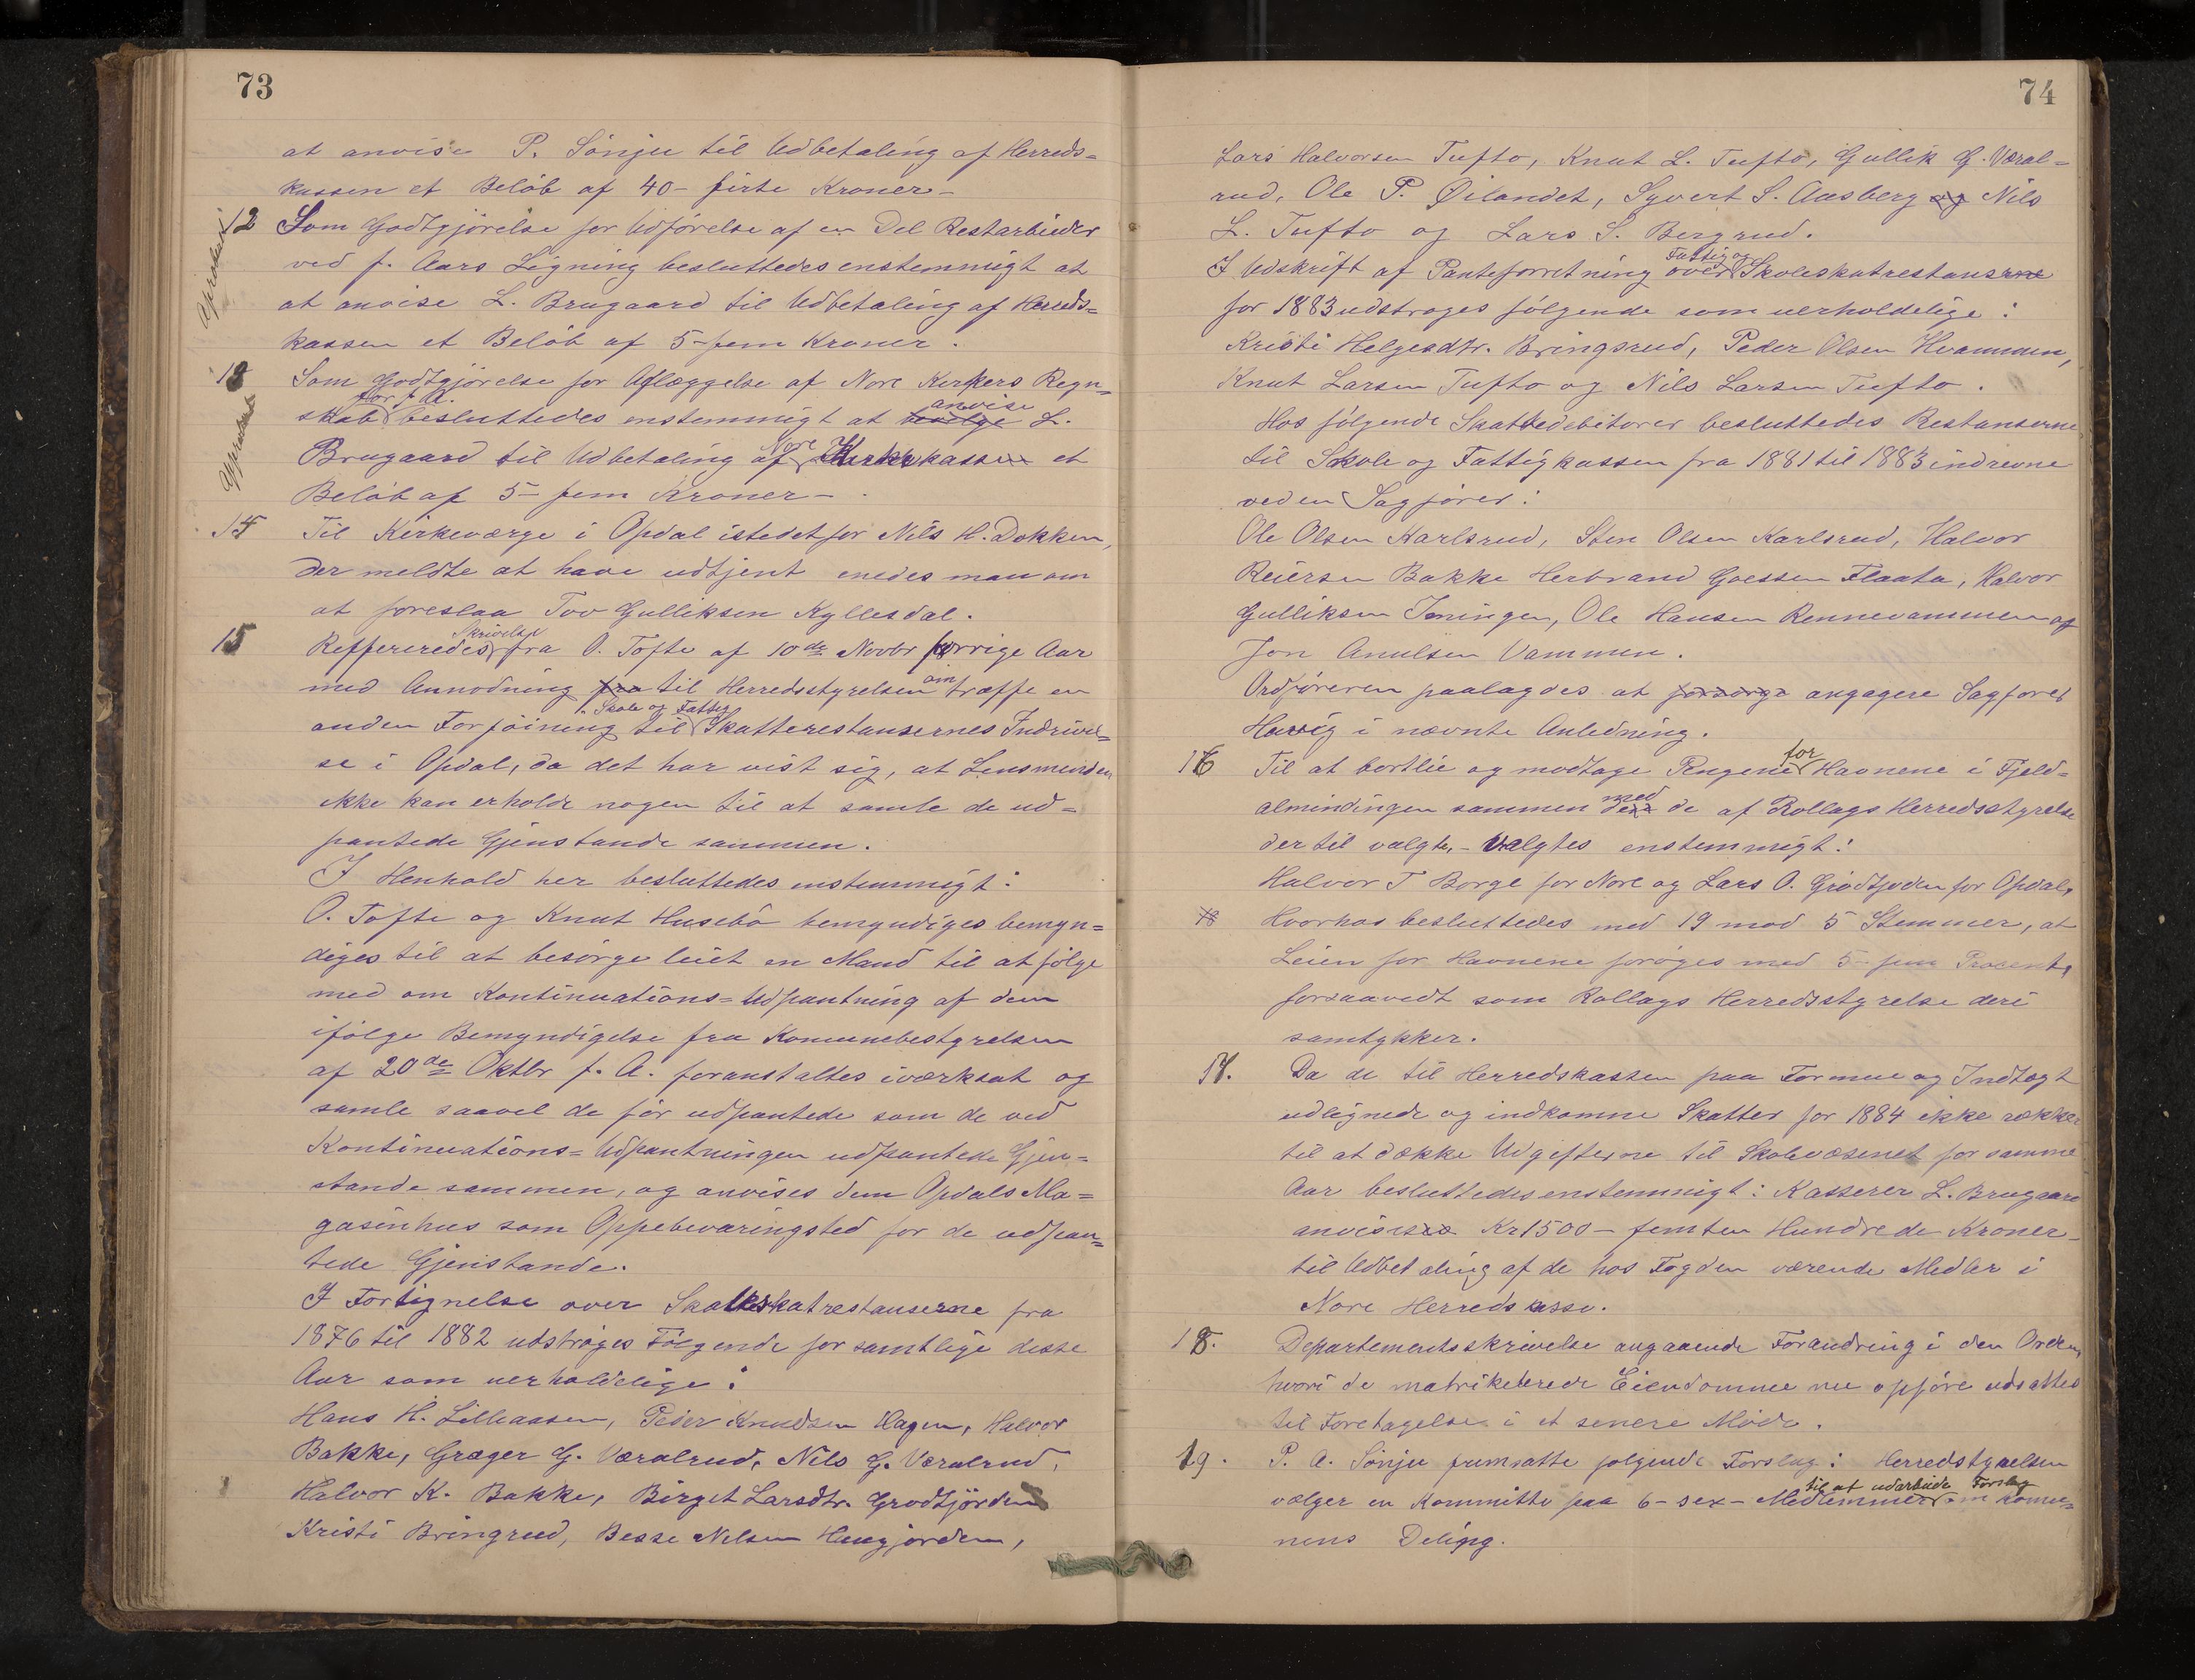 73
at anvise P. Sönju til Udbetaling af Herreds=
kassen et Belöb af 40 - firti Kroner -
Approberet
12 Som Godtgjörelse for Udförelse af en Del Restarbeider
ved f. Aars Ligning besluttedes enstemmigt at
at anvise L. Brugaard til Udbetaling af Herreds=
kassen et Belöb af 5 - fem Kroner.
Approberet
13 Som Godtgjörelse for Aflæggelse af Nore Kirkers Regn=
skab for f. A. besluttedes enstemmigt at bevilge anvise L.
Brugaard til Udbetaling af Nore Kirkekasse et
Belöb af 5 - fem Kroner -
14 Til Kirkeværge i Opdal istedetfor Nils H. Dokken,
der meldte at have udtjent enedes man om
at foreslaa Tov Gulliksen Kyllesdal.
15 Reffereredes Skrivelse fra O. Tofte af 10de Novbr forrige Aar
med Anmodning fra til Herredsstyrelsen om træffe en
anden Forföining til Skole og Fattig Skatterestansernes Indrivel=
se i Opdal, da det har vist sig, at Lensmanden
ikke kan erholde nogen til at samle de ud=
pantede Gjenstande sammen.
I Henhold her besluttedes enstemmigt:
O. Tofte og Knut Husebö bemyndiges bemyn=
diges til at besörge leiet en Mand til at fölge
med om Kontinuations=Udpantning af dem
ifölge Bemyndigelse fra Komunebestyrelsen
af 20de Oktbr f. A. foranstaltes iværksat og
samle saavel de för udpantede som de ved
Kontinuations=Udpantningen udpantede Gjen=
stande sammen, og anvises dem Opdals Ma=
gasinhus som Oppebevaringsted for de udpan=
tede Gjenstande.
I Fortegnelse over Skoleskatrestanserne fra
1876 til 1882 udströges Fölgende for samtlige disse
Aar som uerholdelige:
Hans H. Lilleaasen, Peder Knudsen Hagen, Halvor
Bakke, Græger G. Væralrud, Nils G. Væralrud,
Halvor K. Bakke, Birget Larsdtr. Grodtjörden
Kristi Bringrud, Besse Nilsen Haugjorden,
74
Lars Halvorsen Tufto, Knut L. Tufto, Gullik G. Væral=
rud, Ole P. Öilandet, Syvert S. Aasberg og Nils
L. Tufto og Lars S. Bergrud.
I Udskrift af Panteforretning over Fattig og Skoleskatrestanserne
for 1883 udstroges fölgende som uerholdelige:
Kristi Helgesdtr. Bringsrud, Peder Olsen Hvammen,
Knut Larsen Tufto og Nils Larsen Tufto.
Hos fölgende Skattedebitorer besluttedes Restanserne
til Skole og Fattigkassen fra 1881 til 1883 indrevne
ved en Sagförer:
Ole Olsen Karlsrud, Sten Olsen Karlsrud, Halvor
Reiersen Bakke Herbrand Goessen Flaata, Halvor
Gulliksen Imingen, Ole Hansen Rennevammen og
Jon Anulsen Vammen.
Ordföreren paalagdes at forsörge angagere Sagförer
Harvig i nævnte Anledning.
16 Til at bortlie og modtage Pengene for Havnene i Fjeld=
almindingen sammen med de af Rollags Herredsstyrelse
der til valgte, - Valgtes enstemmigt:
Halvor T Borge for Nore og Lars O. Grodtjorden for Opdal,
Hvorhos besluttedes med 19 mod 5 Stemmer, at
Leien for Havnene foröges med 5 - fem Procent,
forsaavedt som Rollags Herredsstyrelse deri
samtykker.
17. Da de til Herredskassen paa Formue og Indtægt
udlignede og indkomne Skatter for 1884 ikke rækker
til at dække Udgifterne til Skolevæsenet for samme
Aar besluttedes enstemmigt: Kasserer L. Brugaard
anvises Kr 1500 - femten Hundrede Kroner -
til Udbetaling af de hos Fogden værende Midler i
Nore Herredskasse.
18. Departementsskrivelse angaaende Forandring i den Orden,
hvori de matrikelerede Eiendomme nu opföre udsattes
til Foretagelse i et senere Möde.
19. P. A. Sönju fremsatte fölgende Forslag: Herredstyrelsen
vælger en Kommitte paa 6 - sex - Medlemmer til at udarbeide Forslag om Komu=
nens Deling.